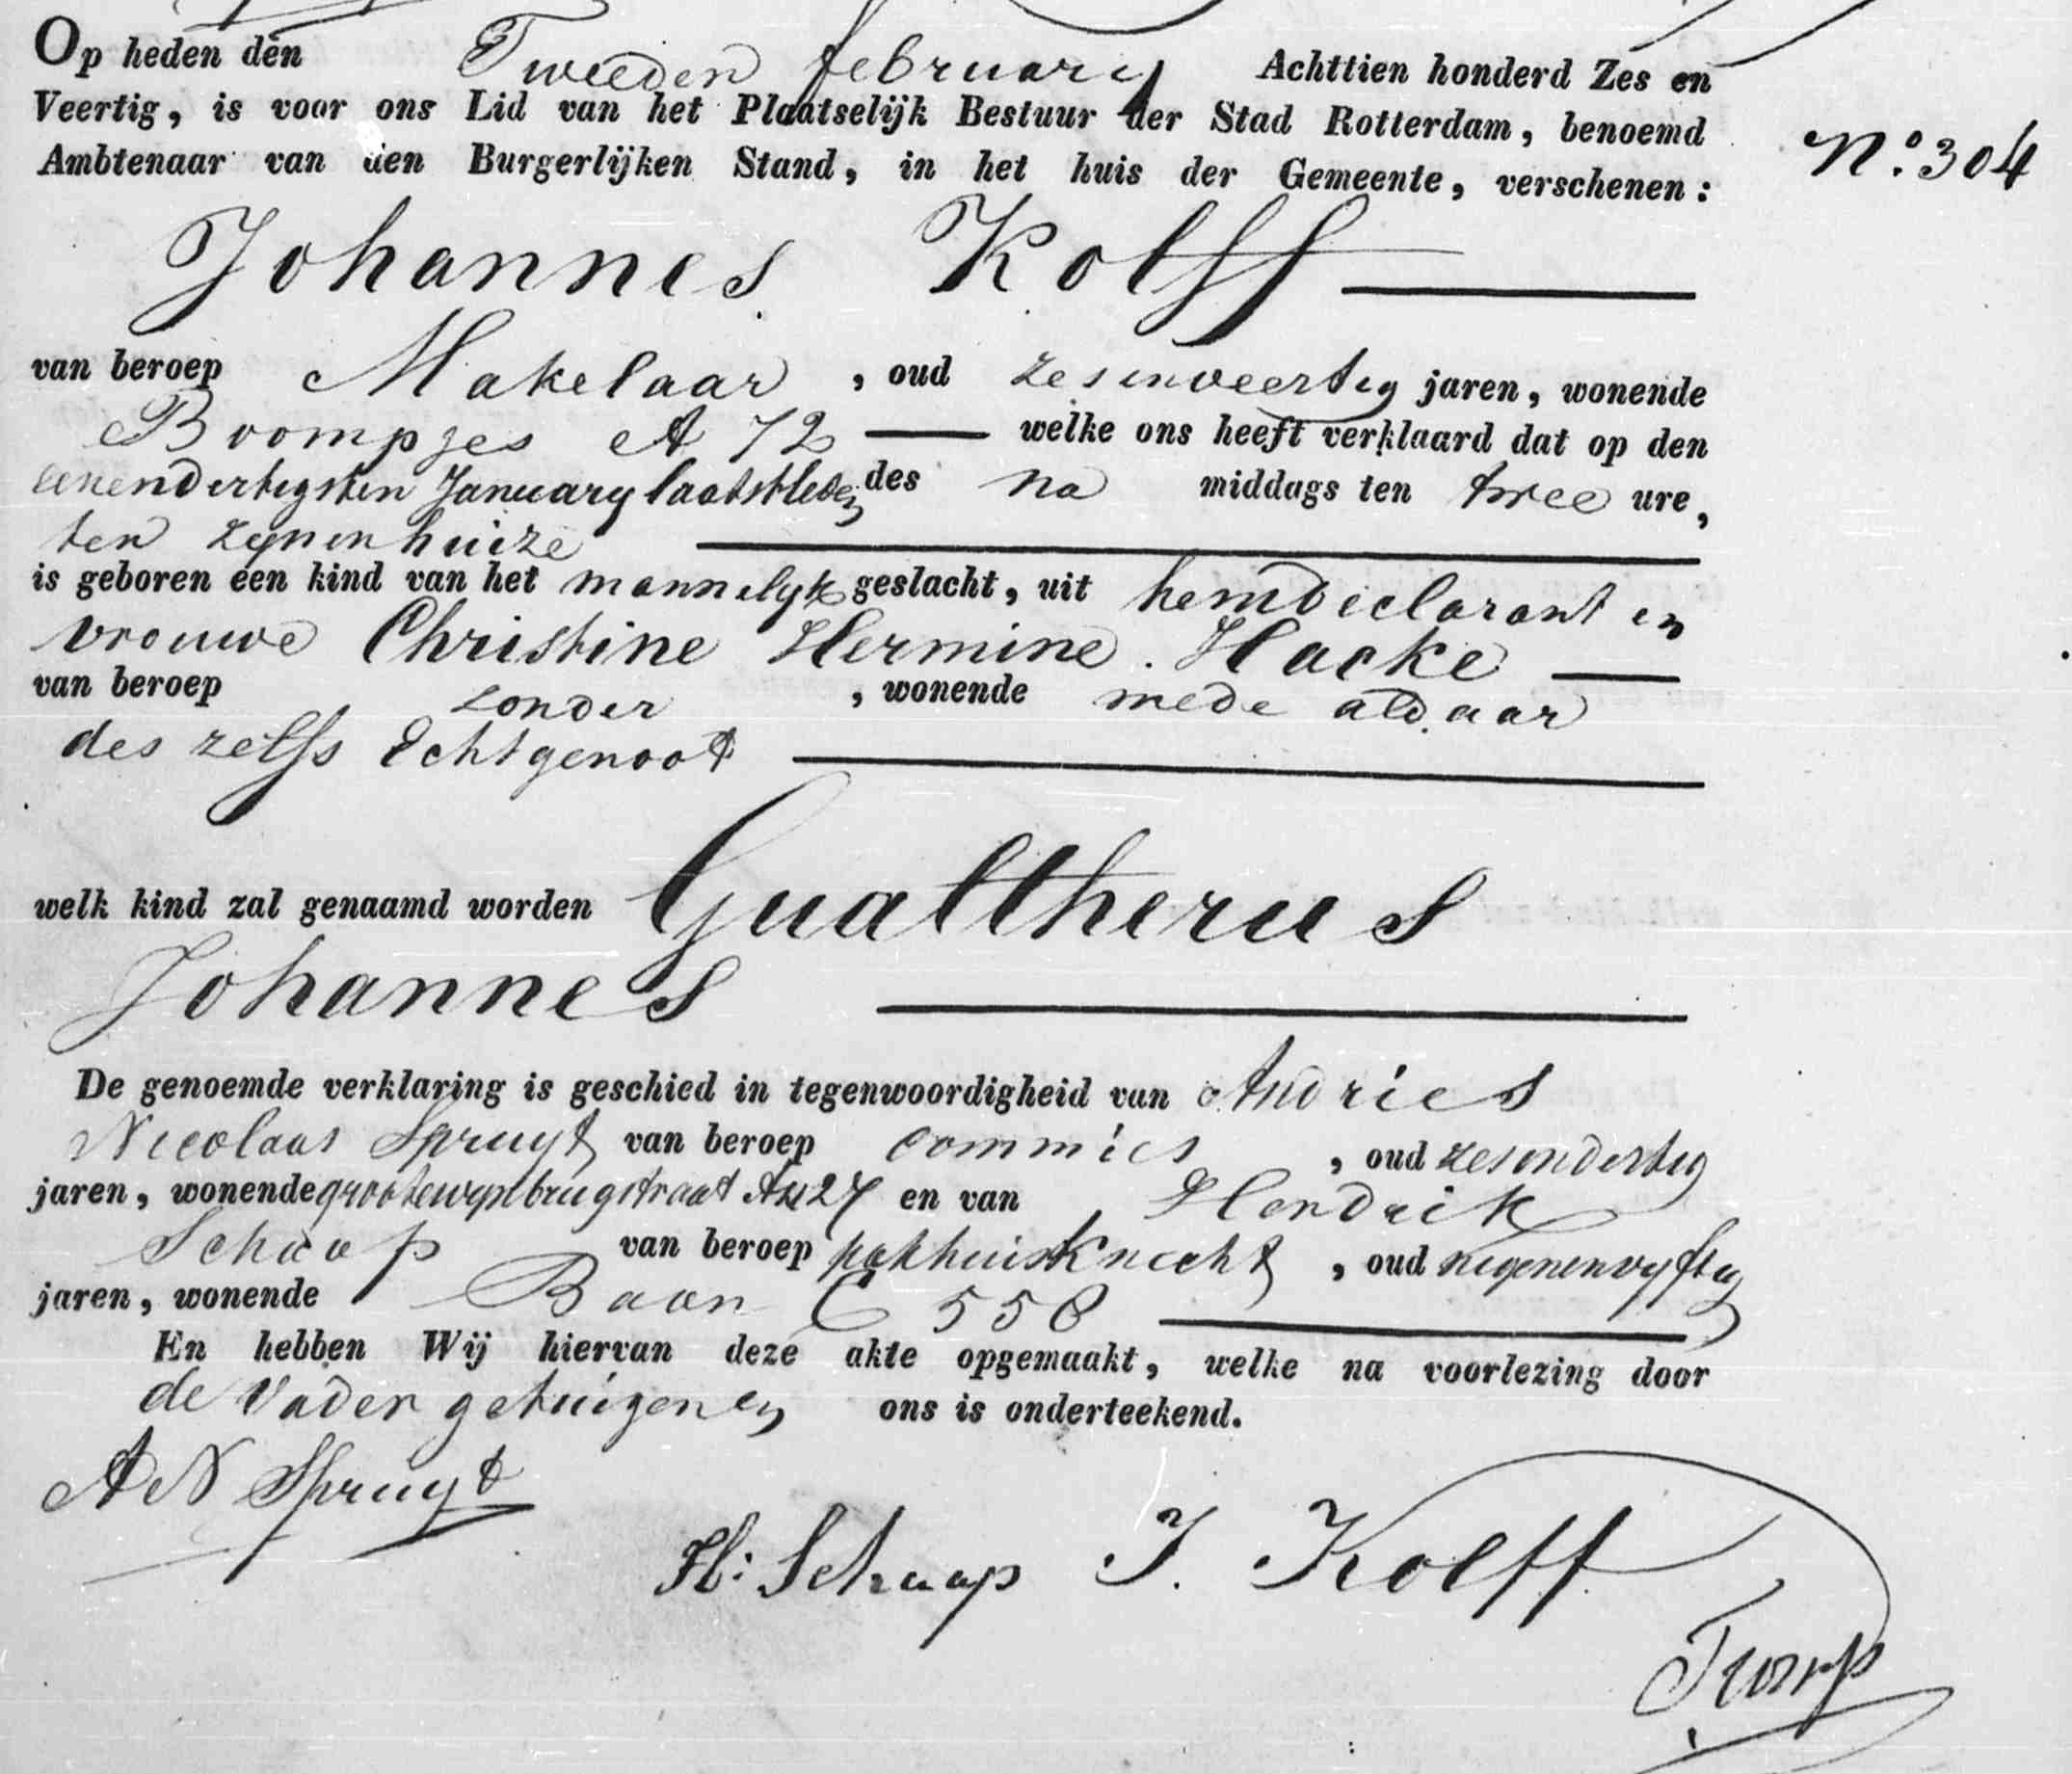 Op heden den Tweeden february Achttien honderd Zes en
Veertig, is voor ons Lid van het Plaatselijk Bestuur der Stad Rotterdam, benoemd
Ambtenaar van den Burgerlijken Stand, in het huis der Gemeente, verschenen:
No. 304
Johannes Kolff
van beroep Makelaar, oud zesenveertig jaren, wonende
Boompjes A 72 welke ons heeft verklaard dat op den
eenendertigsten January laatstleden des na middags ten twee ure,
ten zynen huize
is geboren een kind van het mannelyk geslacht, uit hem declarant en
vrouwe Christine Hermine Hacke
van beroep zonder, wonende mede aldaar
des zelfs Echtgenoot
welk kind zal genaamd worden Gualtherus
Johannes
De genoemde verklaring is geschied in tegenwoordigheid van Andries
Nicolaas Spruyt van beroep commies, oud zesendertig
jaren, wonende grootewynbrugstraat en van Hendrik
Schaap van beroep pakhuisknecht, oud negenenvyftig
jaren, wonende Baan C 558
En hebben Wij hiervan deze akte opgemaakt, welke na voorlezing door
de Vader getuigen en ons is onderteekend.
A N Spruyt
H: Schaap J. Kolff